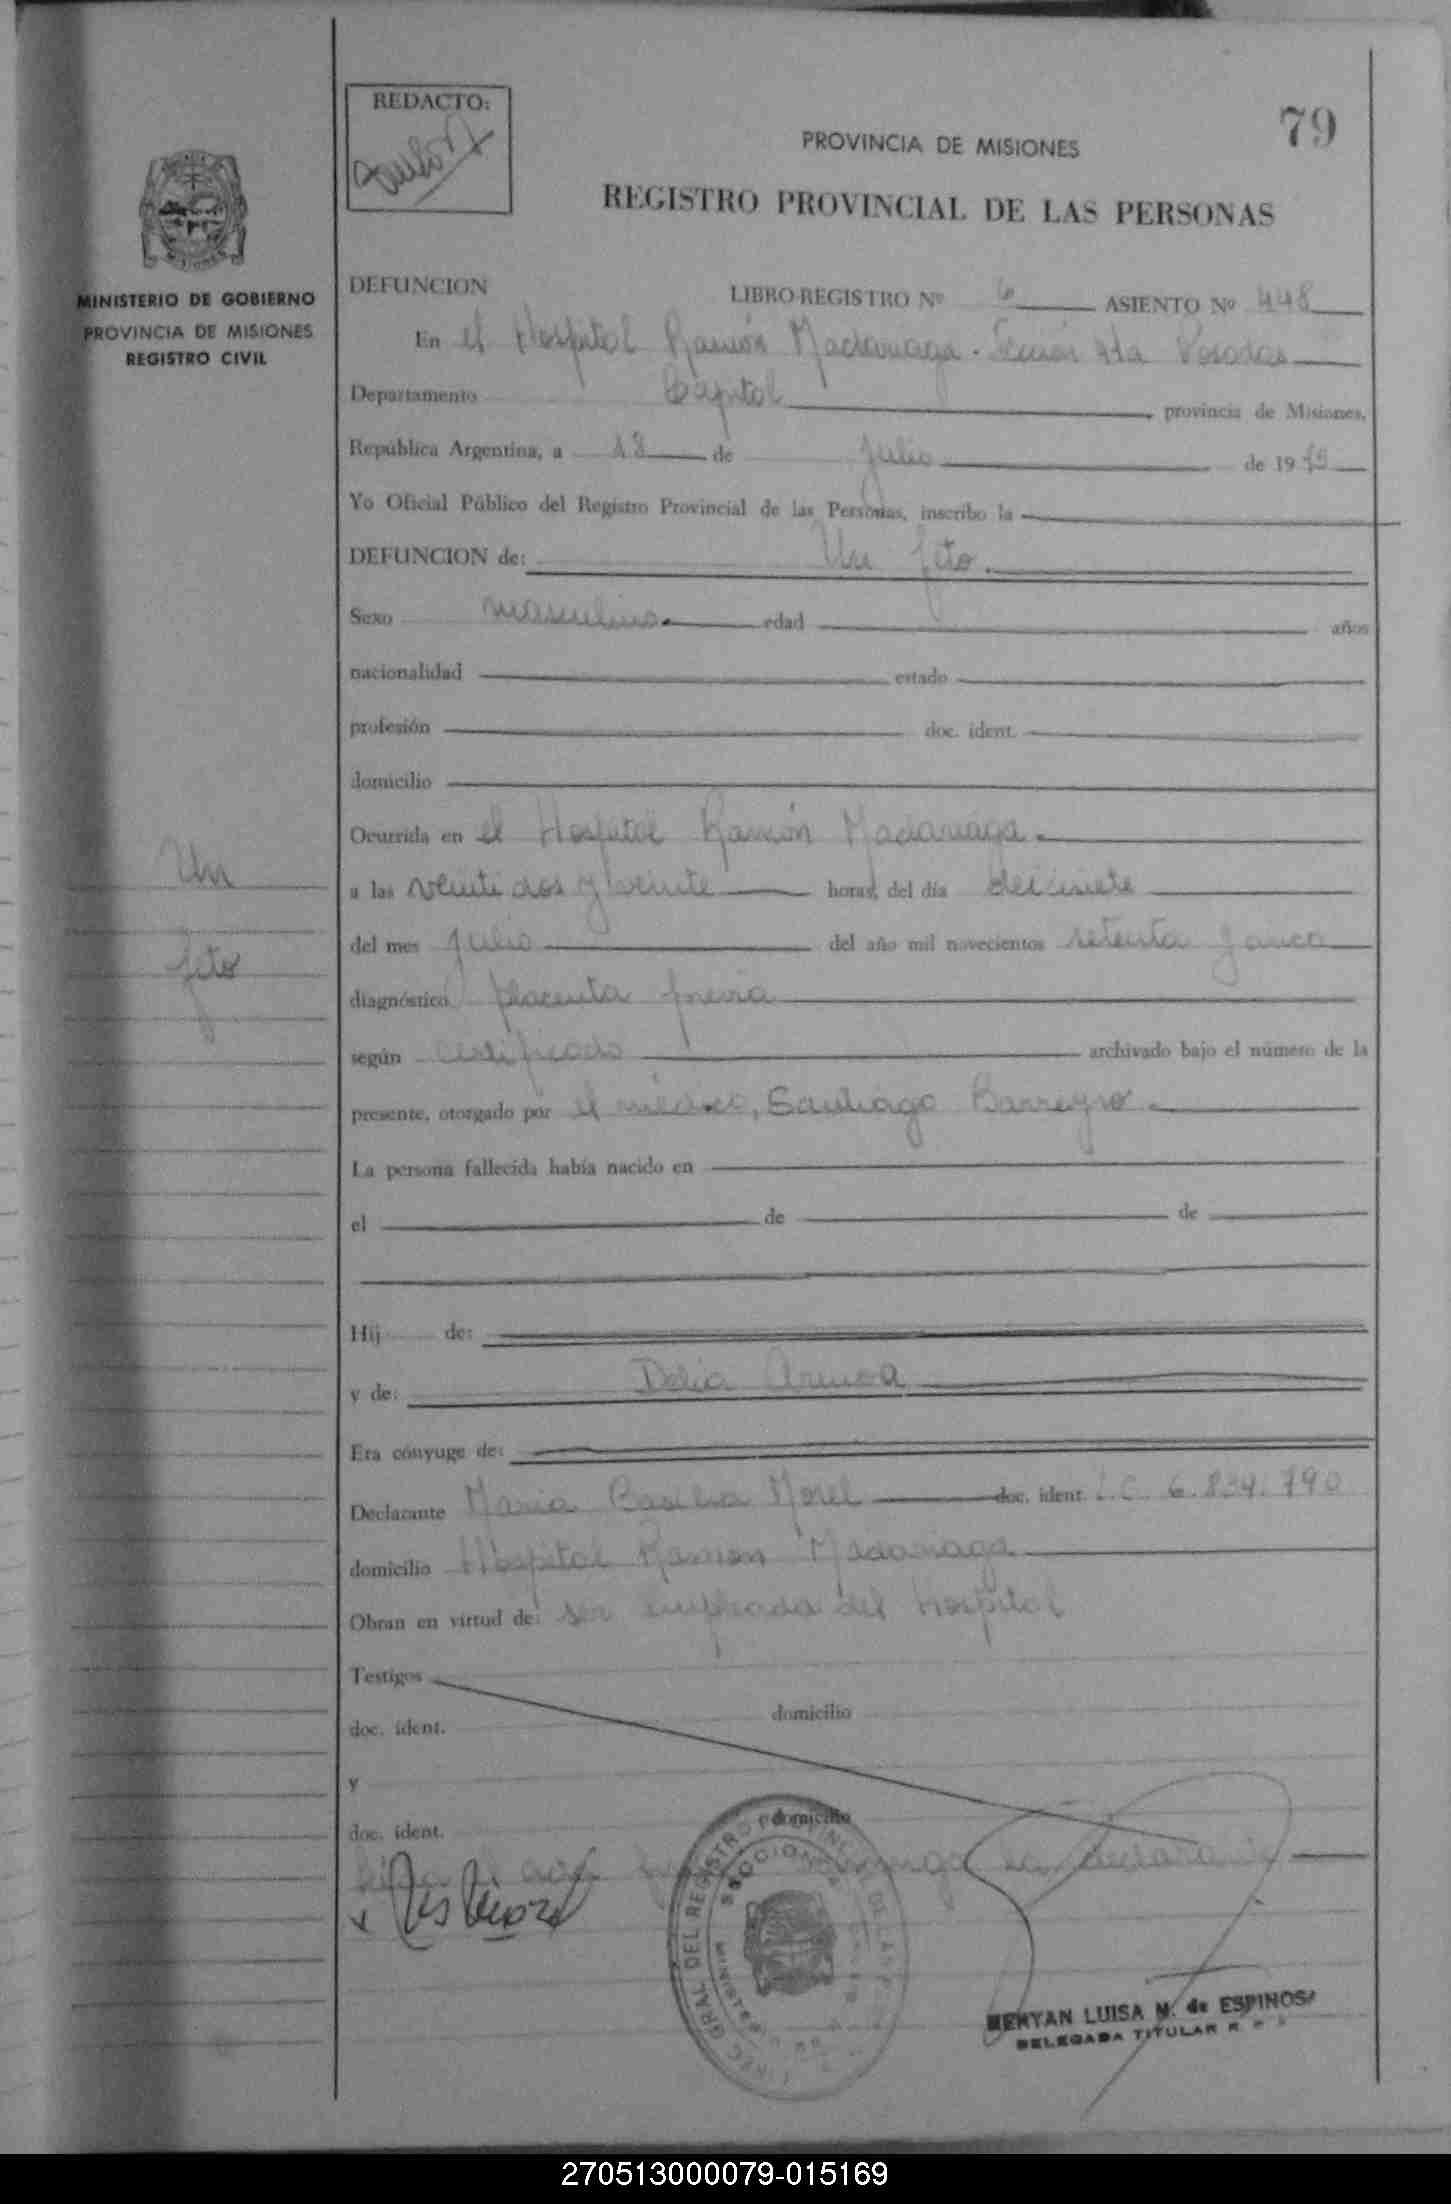 REDACTO:
79
PROVINCIA DE MISIONES
REGISTRO PROVINCIAL DE LAS PERSONAS
MISIONES
MINISTERIO DE GOBIERNO
PROVINCIA DE MISIONES
REGISTRO CIVIL
DEFUNCION LIBRO-REGISTRO Nº 6 ASIENTO Nº 448
En el Hospital Ramón Madariaga - Sección 4ta Posadas
Departamento Capital provincia de Misiones,
República Argentina, a 18 de julio de 1975
Yo Oficial Público del Registro Provincial de las Personas, inscribo la
DEFUNCION de: Un feto.
Sexo masculino edad años
nacionalidad estado
profesión doc. ident.
domicilio
Ocurrida en el Hospital Ramón Madariaga.
a las veinti dos y veinte horas, del día diecisiete
del mes julio del año mil novecientos setenta y cinco
diagnóstico placenta previa
según certificado archivado bajo el número de la
presente, otorgado por el médico, Santiago Barreyro.
La persona fallecida había nacido en
el de de
Hij de:
y de: Delia Armoa
Era cónyuge de:
Declarante Maria Basilia Morel doc. ident. L.C. 6.834.790
domicilio Hospital Ramón Madariaga
Obran en virtud de: ser empleada del Hospital
Testigos
doc. ident. domicilio
y
doc. ident. domicilio
la declarante
Un
feto
MERYAN LUISA N. de ESPINOSA
DELEGADA TITULAR R
270513000079-015169